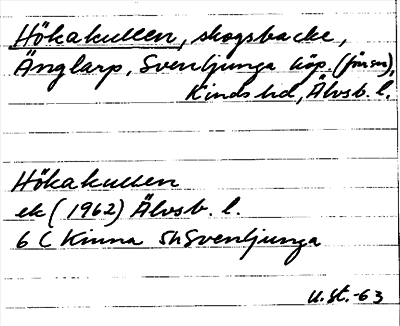 Hökakullen, skogsbacke,
Änglarp, Svenljunga köp. (förs.),
Kinds hd, Älvsb. l.
Hökakullen
ek (1962) Älvsb. l.
6 C Kinna 5h Svenljunga
U. St. -63